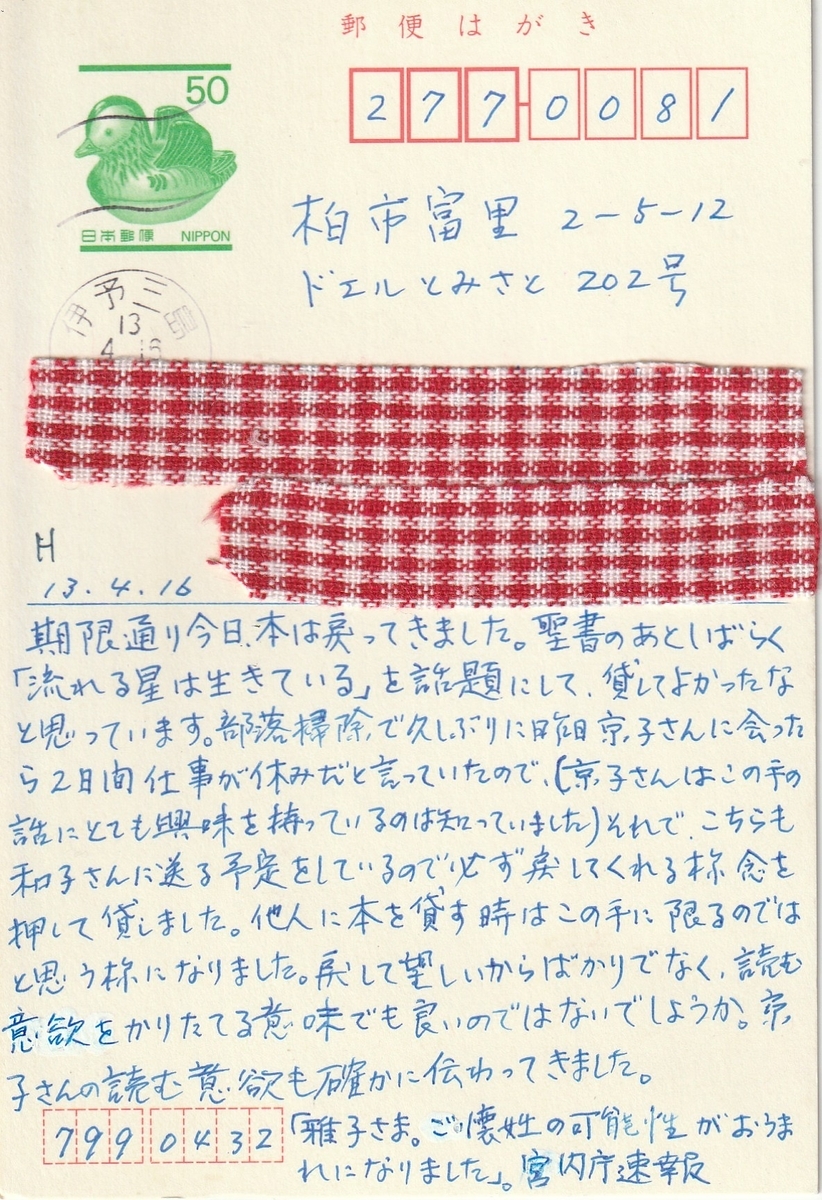 郵便はがき
50
日本郵便 NIPPON
277-0081
柏市富里 2-5-12
ドエルとみさと 202号
伊予三島
13
4.16
H
13.4.16
期限通り今日、本は戻ってきました。聖書のあとしばらく
「流れる星は生きている」を話題にして、貸してよかったな
と思っています。部落掃除で久しぶりに昨日京子さんに会った
ら2日間仕事が休みだと言っていたので、(京子さんはこの手の
話にとても興味を持っているのは知っていました)それで、こちらも
和子さんに送る予定をしているので必ず戻してくれる様念を
押して貸しました。他人に本を貸す時はこの手に限るのでは
と思う様になりました。戻して望しいからばかりでなく、読む
意欲をかりたてる意味でも良いのではないでしょうか。京
子さんの読む意欲も確かに伝わってきました。
「雅子さま。ご懐妊の可能性がおうま
れになりました」。宮内庁速報
7990432